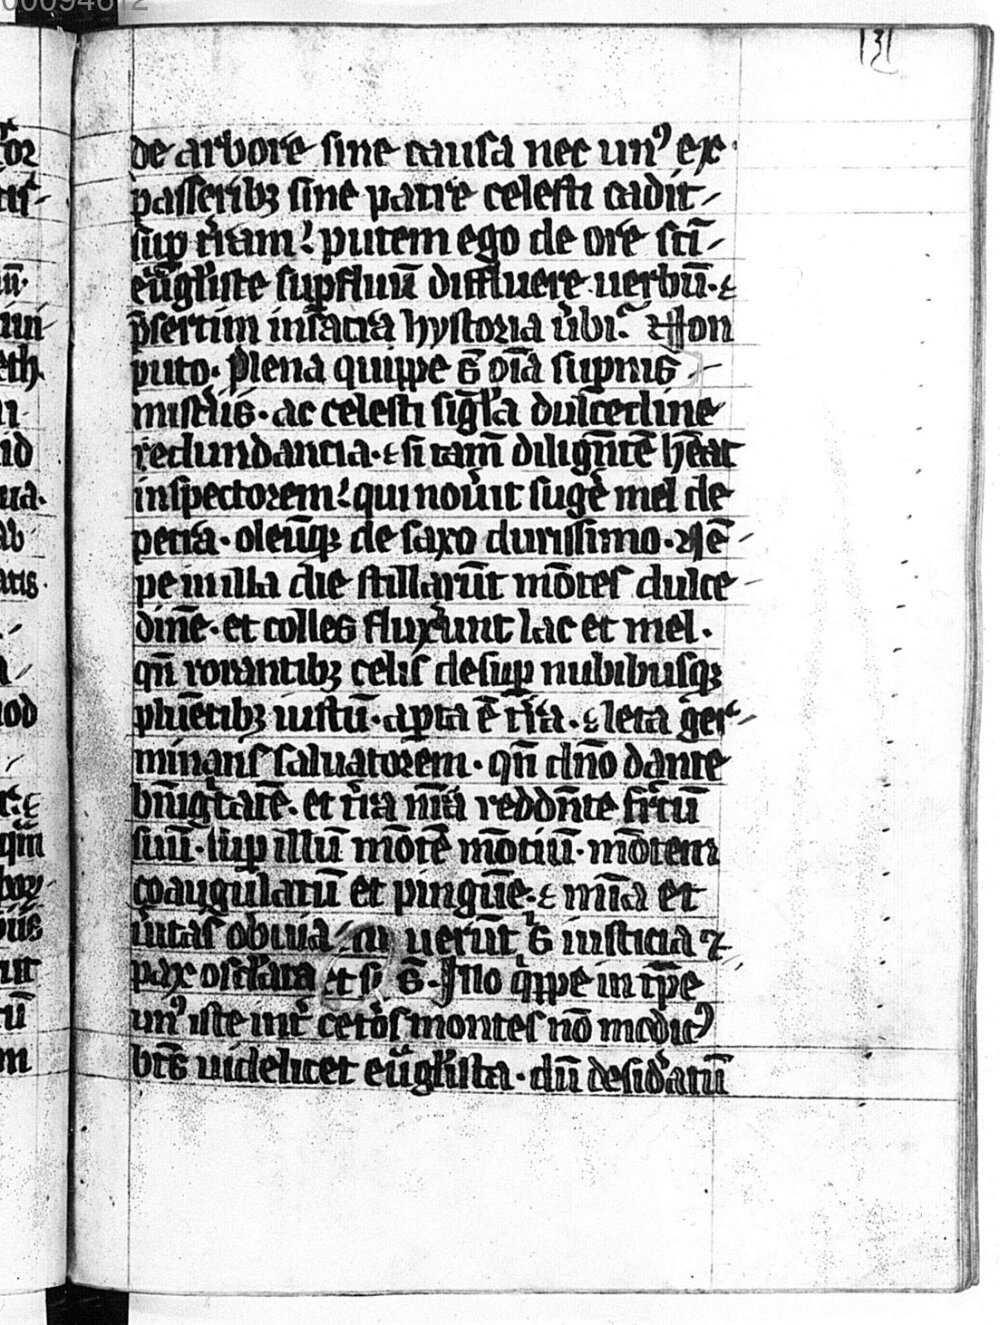 00094612
131
de arbore sine causa nec un⁹ ex
passeribꝫ sine patre celesti cadit
sup t̄ram? putem ego de ore sc̄i
eūgl̄iste supfluū diffluere uerbū· ⁊
p̄sertim in sacra hystoria ūbi? Non
puto· Plena quippe s̄ oīa supnis
mist̄iis· ac celesti sigl̄a dulcedine
redundancia· ⁊ si tam̄ diligēntē h̄eāt
inspectorem? qui nou̾it sugē mel de
petra· oleūqꝫ de saxo durissimo· Nē
pe in illa die stillarūt mōtes dulce
dinē· et colles flux̾unt lac et mel·
qn̄ rorantibꝫ celis desup nubibusqꝫ
pluētibꝫ iustū· apta ē t̄ra· ⁊ leta ger
minans saluatorem· qn̄ dn̄o dante
bn̄igtatē· et t̄ra nr̄a reddn̄te fr̄ctū
suū· sup illū mōtē mōtiū· mōtem
coaugulatū et pinguē· ⁊ mīa et
u̾itas obuia u̾erūt s̄ iusticia ⁊
pax osc̄lata et s̄t s̄· Illo q̾ppe in tp̄e
un⁹ iste int̾ cet̾os montes nō modic⁹
bt̄s uidelicet eūgl̄ista· dū desid̾atū